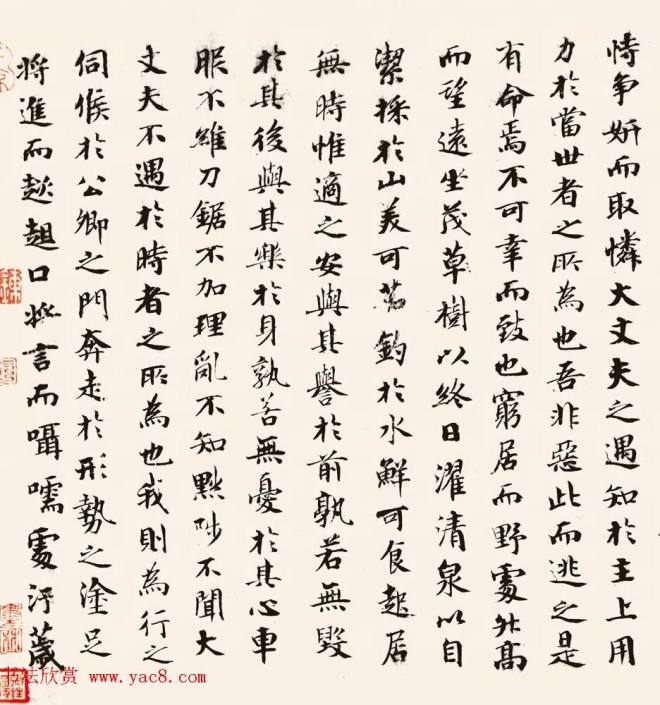 恃争妍而取憐大丈夫之遇知於主上用
力於當世者之所為也吾非惡此而逃之是
有命焉不可幸而致也窮居而野處升高
而望遠坐茂草樹以終日濯清泉以自
潔採於山美可茹釣於水鮮可食起居
無時惟適之安與其譽於前孰若無毀
於其後與其樂於身孰若無憂於其心車
服不維刀鋸不加理亂不知黜陟不聞大
丈夫不遇於時者之所為也我則為行之
伺候於公卿之門奔走於形勢之塗足
將進而趑趄口將言而囁嚅處汙薉
书法欣赏 www.yac8.com